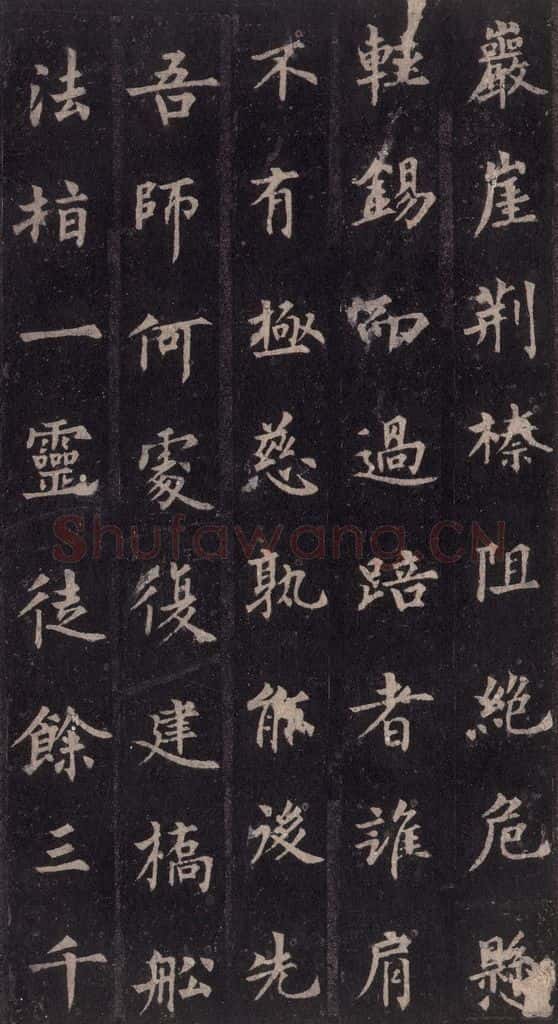 巖崖荆榛阻絶危懸
輊錫而過踣者誰肩
不有極慈孰能後先
吾師何處復建橋舩
法相一靈徒餘三千
Shufawang.CN